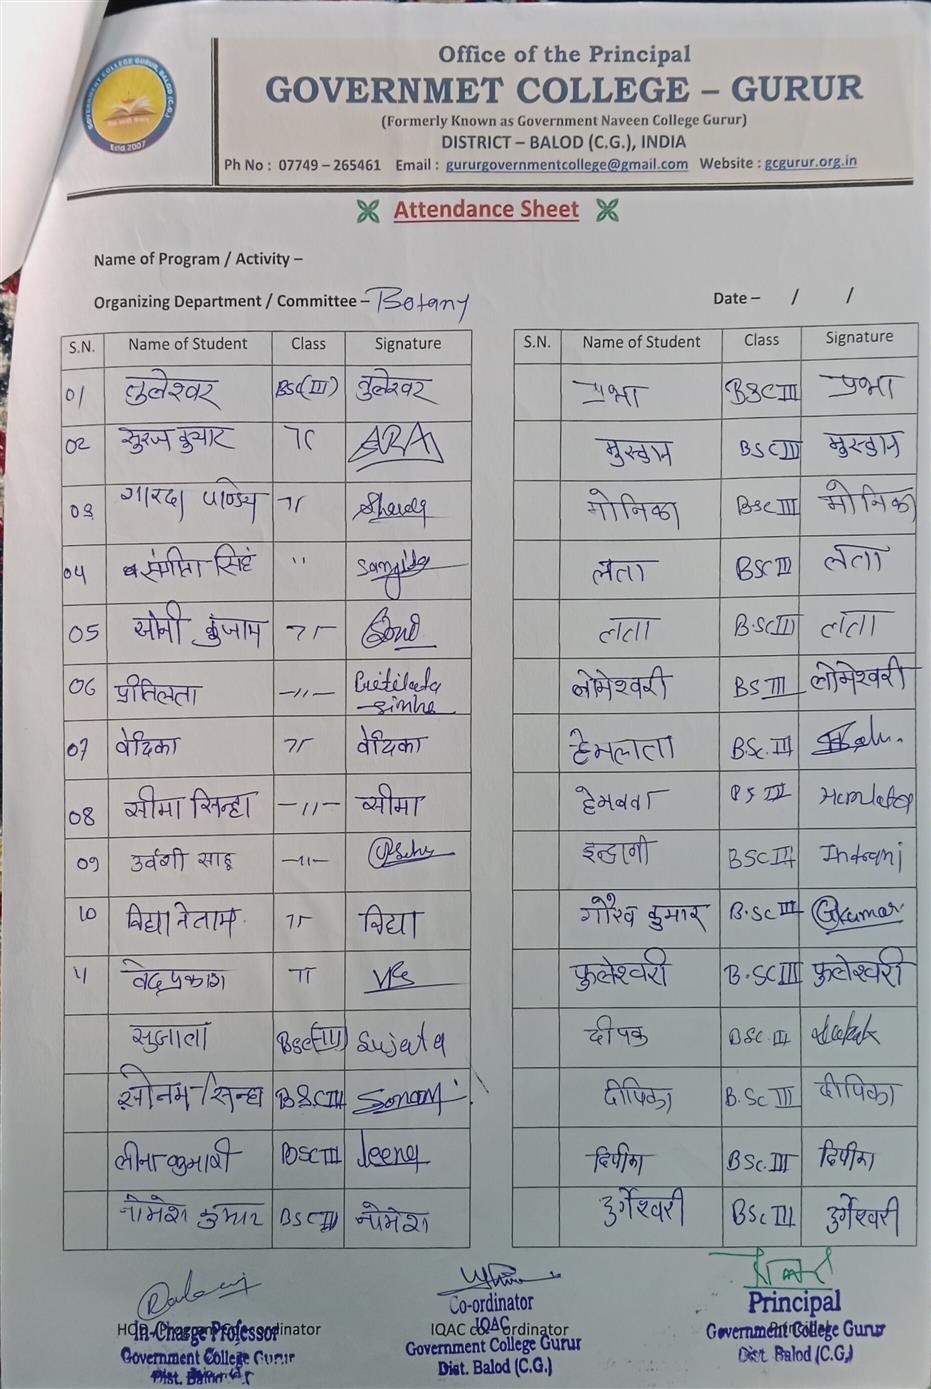 Office of the Principal
GOVERNMET COLLEGE – GURUR
(Formerly Known as Government Naveen College Gurur)
DISTRICT – BALOD (C.G.), INDIA
Ph No : 07749 – 265461 Email : gururgovernmentcollege@gmail.com Website : gcgurur.org.in
Attendance Sheet
Name of Program / Activity –
Organizing Department / Committee – Botany
Date – / /
S.N. Name of Student Class Signature
01 तुलेश्वर BSC(III) तुलेश्वर
02 सुरज कुमार
03 शारदा पाण्डेय Sharda
04 संगीता सिंह " Sangita
05 सोनी कुंजाम Soni
06 प्रीतिलता –11– Pritilata Sinha
07 वेदिका वेदिका
08 सीमा सिन्हा –11– सीमा
09 उर्वशी साहू –11–
10 विद्या नेताम विद्या
11 वेदप्रकाश
सुजाता BSC(III) Sujata
सोनम सिन्हा BSC III Sonam
लीना कुमारी BSC III Leena
नोमेश कुमार BSC III नोमेश
S.N. Name of Student Class Signature
प्रभा BSC III प्रभा
मुस्कान BSC III मुस्कान
मोनिका BSC III मोनिका
लता BSC III लता
लता B.SC III लता
लोमेश्वरी BS III लोमेश्वरी
हेमलता B.Sc. III
Hemlata
इन्द्राणी BSC III Indrani
गौरव कुमार B.SC III Gkumar
फुलेश्वरी B.SC III फुलेश्वरी
दीपक BSC. III
दीपिका B.SC III दीपिका
BSC. III
दुर्गेश्वरी BSC III दुर्गेश्वरी
In-Charge Professor
Government College Gurur
Co-ordinator
IQAC
IQAC co-ordinator
Government College Gurur
Dist. Balod (C.G.)
Principal
Government College Gurur
Dist. Balod (C.G.)